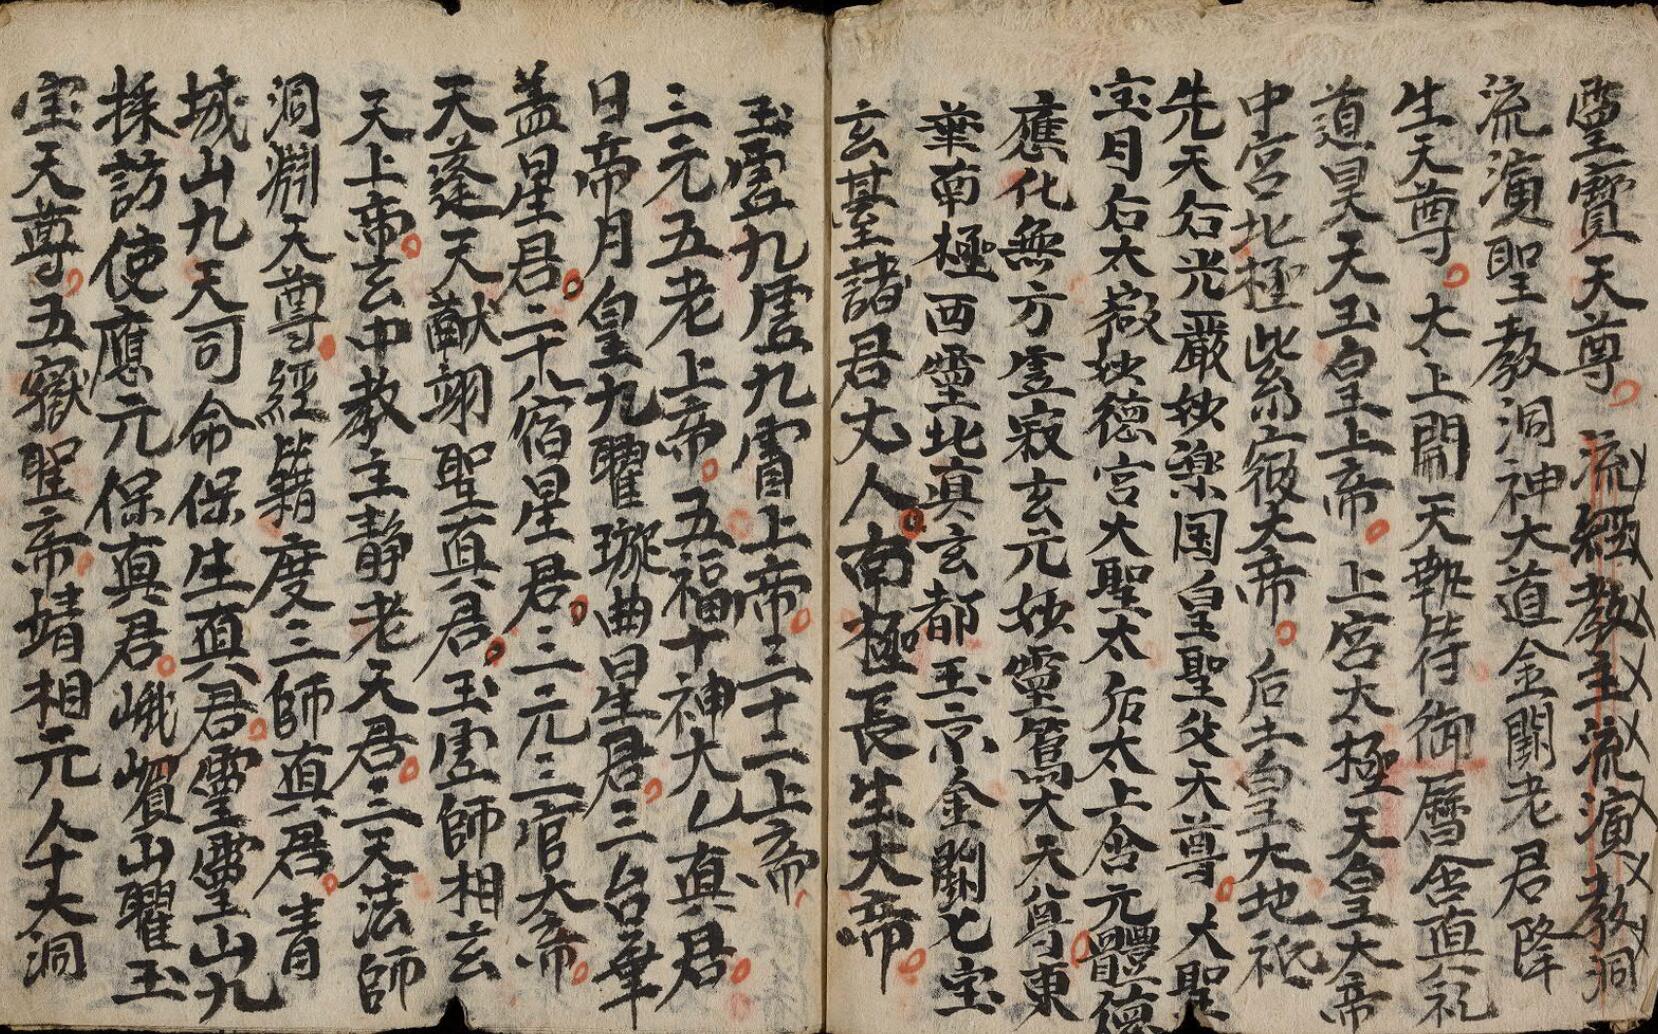 靈寳天尊。流經教主流演教洞
流演聖教洞神大道金闕老君降
生天尊。大上開天執符御曆含真体
道昊天玉皇上帝。上宮太極天皇大帝
中宮北極紫微大帝。后土皇大地祇
先天后光嚴妙楽国皇聖父天尊。大聖
宝月后太嶽妙德宮大聖太后太上含元體德
應化無方虚寂玄元妙靈篤大天尊。東
華南極西靈北真玄都玉京金闕七宝
玄基諸君丈人。南極長生大帝。
玉虚九虚九霄上帝。三十二上帝。
三元五老上帝。五福十神大乙真君。
日帝月皇九曜璇曲星君。三台華
盖星君。二十八宿星君。三元三官大帝。
天蓬天猷翊聖真君。玉虚師相玄
天上帝。玄中教主静老天君。三天法師
洞淵天尊。經籍度三師真君。青
城山九天司命保生真君。靈靈山九
採訪使應元保真君。峨嵋山瞿玉
宝天尊。五嶽聖帝。靖相元人十大洞